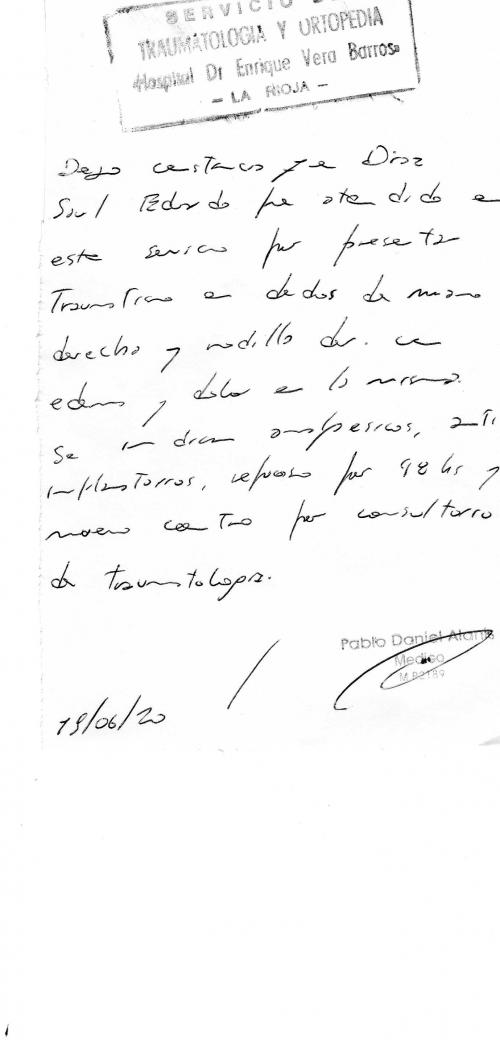 SERVICIO DE
TRAUMATOLOGIA Y ORTOPEDIA
«Hospital Dr Enrique Vera Barros»
- LA RIOJA -
Dejo constancia que Diaz
Saul Eduardo fue atendido en
este servicio por presentar
Traumatismo en dedos de mano
derecha y rodilla der. con
edema y dolor en la misma.
Se indican analgesicos, anti
inflamatorios, reposo por 48 hs y
nuevo control por consultorio
de traumatologia.
Pablo Daniel Alanis
Medico
M.P.2189
19/06/20